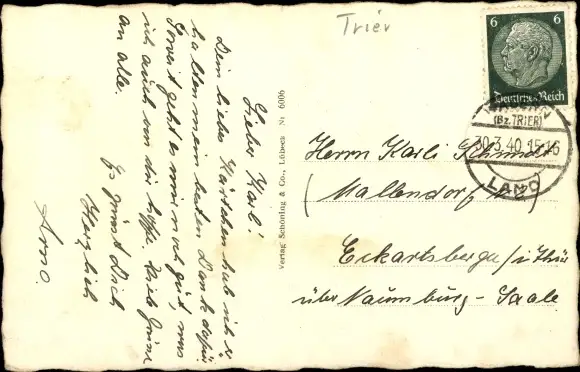 Trier
6 6
Deutsches Reich
(Bz. TRIER)
30.3.40.15-16
LAND
Lieber Karl!
Dein liebes Kärtchen hab ich er
halten mein besten Dank dafür
Soweit geht es mir noch gut, was
ich auch von dir hoffe. Viele Grüße
an alle.
Es grüßt Dich
Herzlich
Arno.
Verlag Schöning & Co., Lübeck Nr 6006
Herrn Karli Schmidt
(Mallendorf
Eckartsberga/i Thür
über Naumburg - Saale